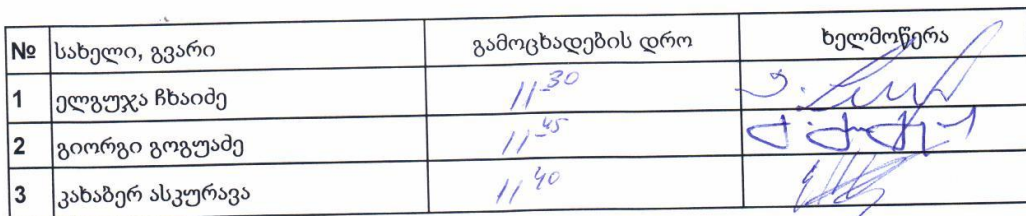 № სახელი, გვარი გამოცხადების დრო ხელმოწერა
1 ელგუჯა ჩხაიძე 11 30
2 გიორგი გოგუაძე 11 45
3 კახაბერ ასკურავა 11 40